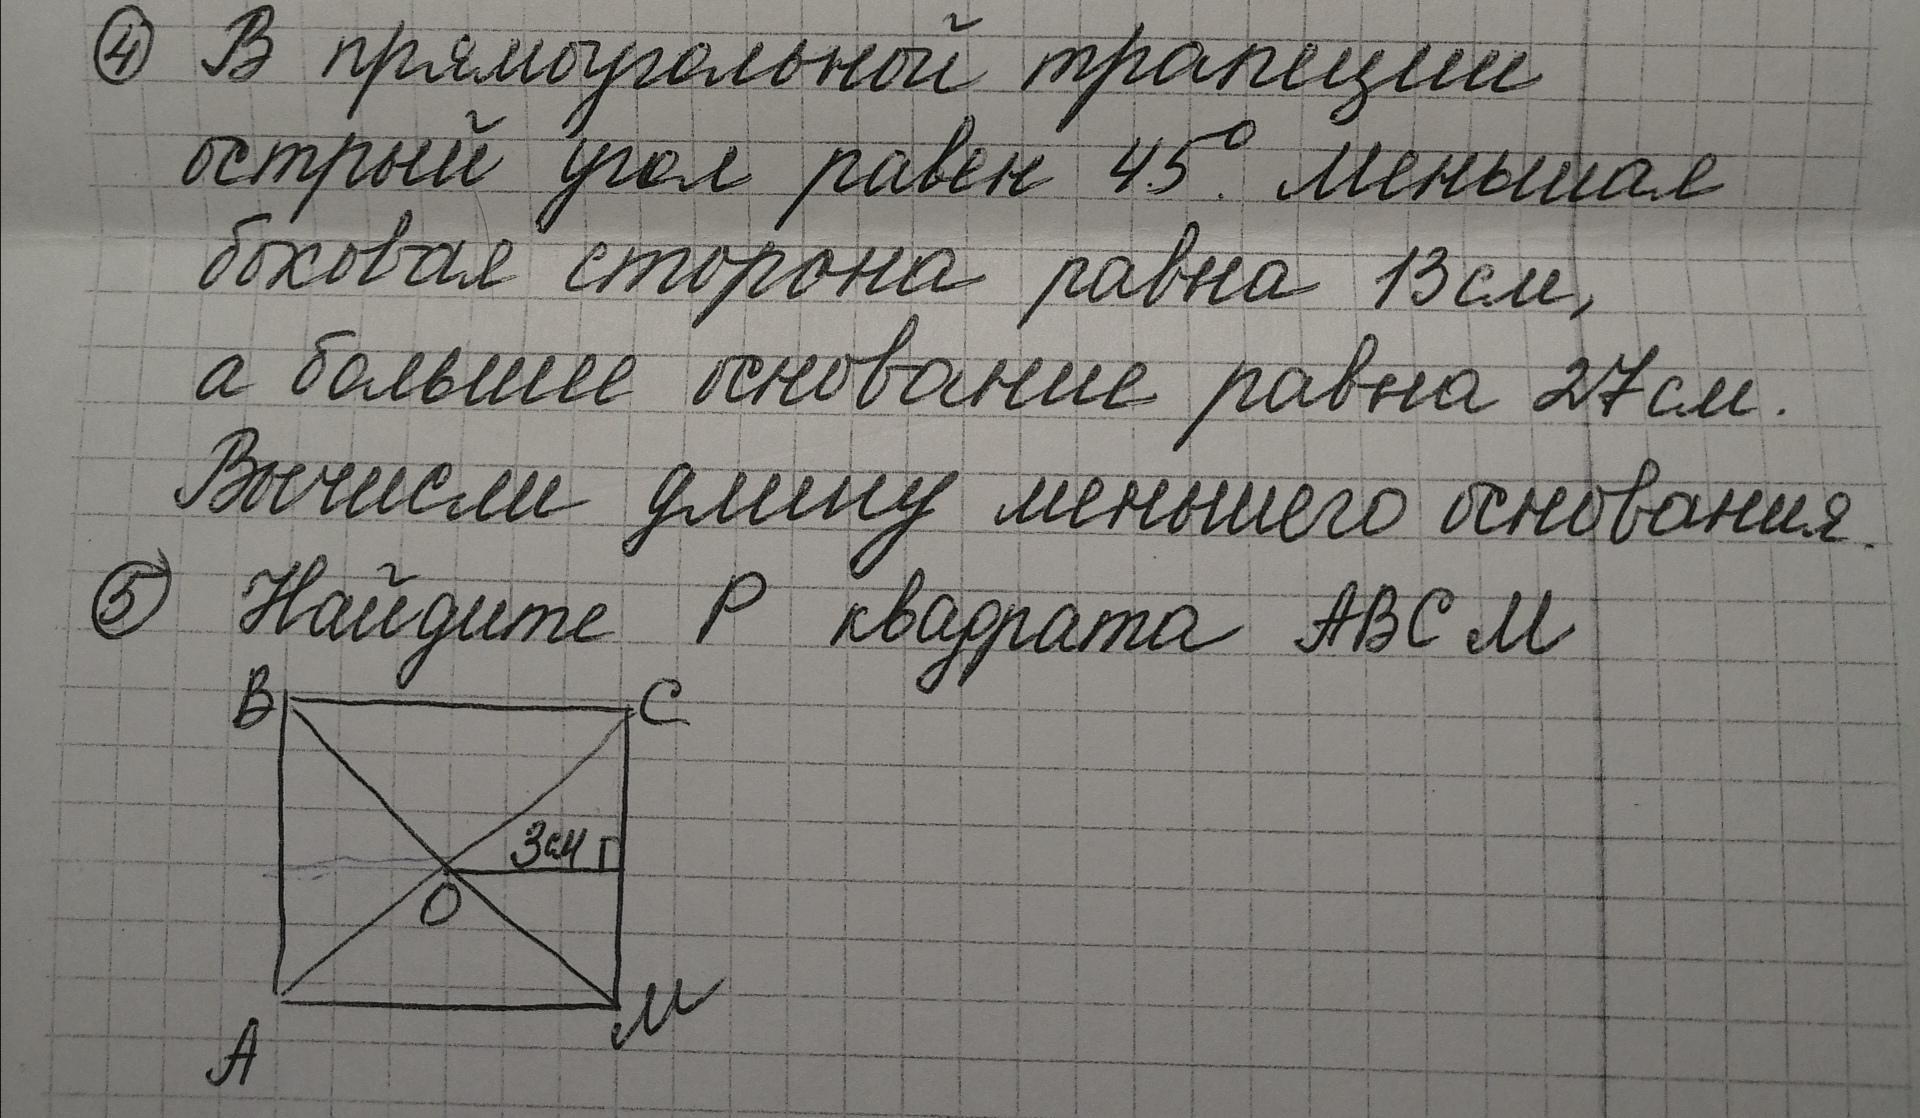 ④ В прямоугольной трапеции
острый угол равен 45°. Меньшая
боковая сторона равна 13см,
а большее основание равна 27см.
Вычисли длину меньшего основания.
⑤ Найдите Р квадрата АВСМ
В С
3см
О
А М